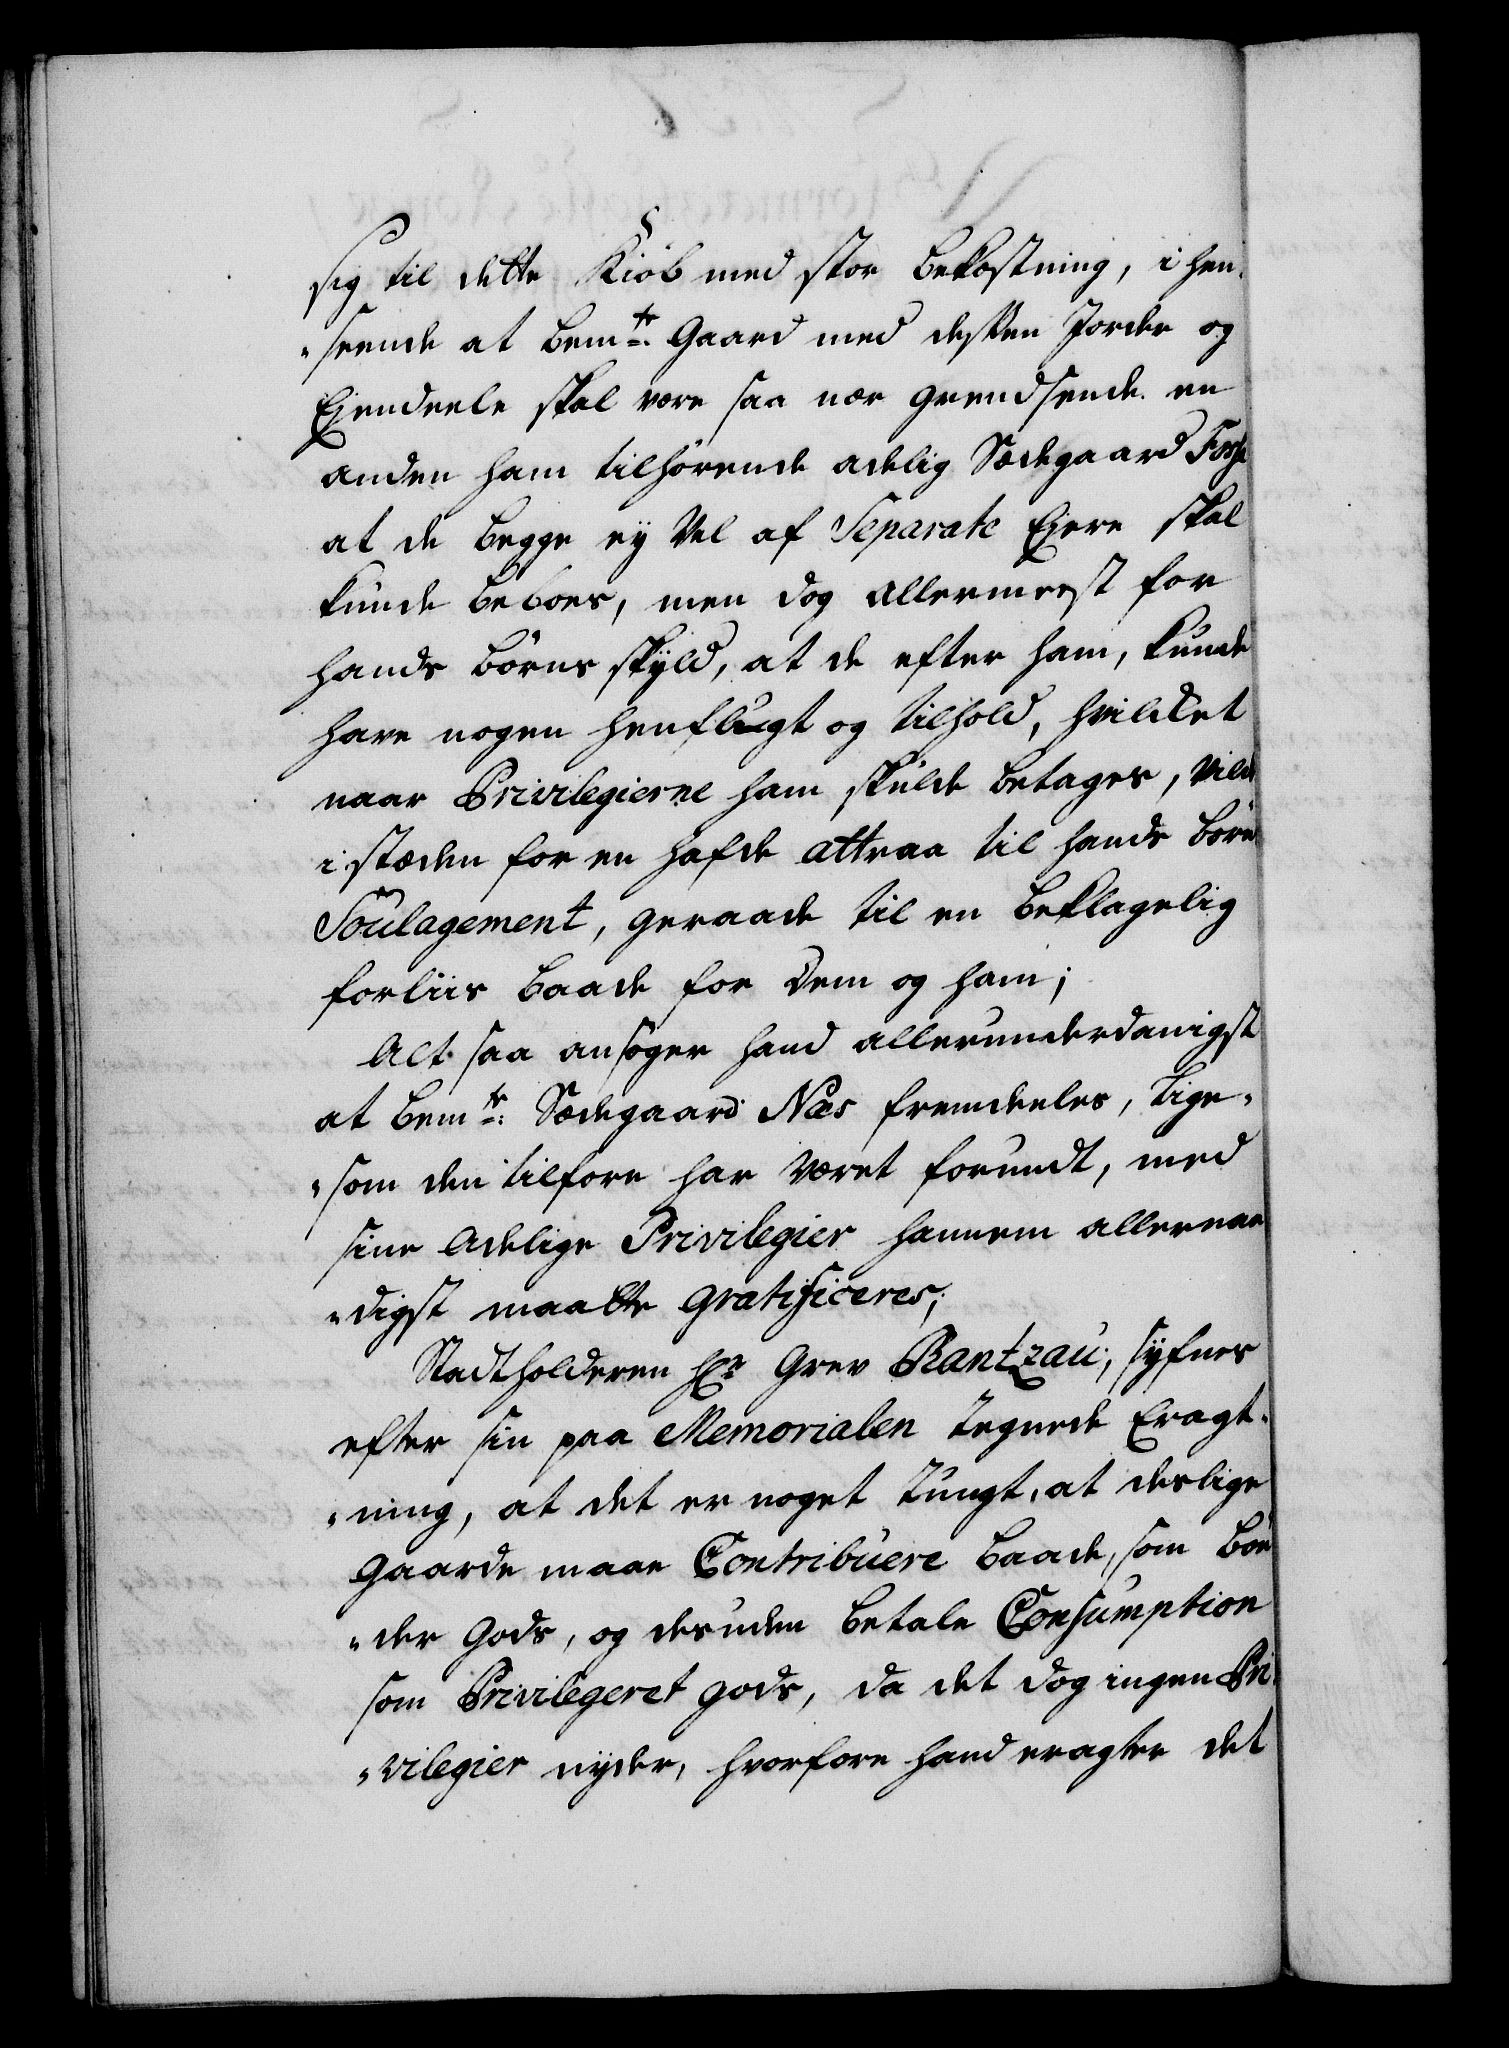 sig til dette Kiöb med stor bekostning, i hen-
"seende at bemte Gaard med desken Jorder og
Ejendeele skal være saa nær grendsende en
anden ham tilhörende adelig Sædegaard
at de begge ey Vel af Separate Ejere skal
kunde beboes, men dog allermeest for
hands börns skyld, at de efter ham, kunde
have nogen henflugt og tilhold, hvilcket
naar Privilegierne ham skulde betages, vilde
i stæden for en hafde attraa til hands börns
Soulagement, geraade til en beklagelig
forliis baade for Dem og ham;
Alt saa ansöger hand allerunderdanigst
at bemte: Sædegaard Næs fremdeeles, lige-
"som den tilforn har været forundt, med
sine Adelige Privilegier hannem allernaa
"digst maatte gratificeres;
Stadtholderen Hr Grev Rantzau, syfnes
efter sin paa Memorialen tegnede Eragt-
"ning, at det er noget tungt, at deslige
Gaarde maae Contribuere baade, som bön
"der Gods, og desuden betale Consumption
som Privilegeret gods, da det dog ingen Pri
"vilegier nyder, hvorfore hand eragter det